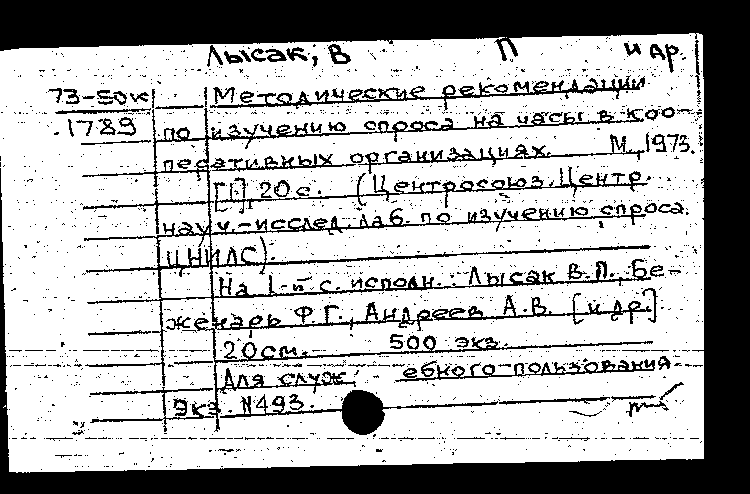 Лысак, В П и др.
73-50к Методические рекомендации
1789 по изучению спроса на часы в коо-
перативных организациях. М., 1973.
[1], 20 с. (Центросоюз. Центр.
науч.-исслед. лаб. по изучению спроса.
ЦНИЛС).
На 1-й с. исполн.: Лысак В.П., Бе-
женарь Ф.Г., Андреев А.В. [и др.]
20см. 500 экз.
Для служебного пользования
Экз. N493.